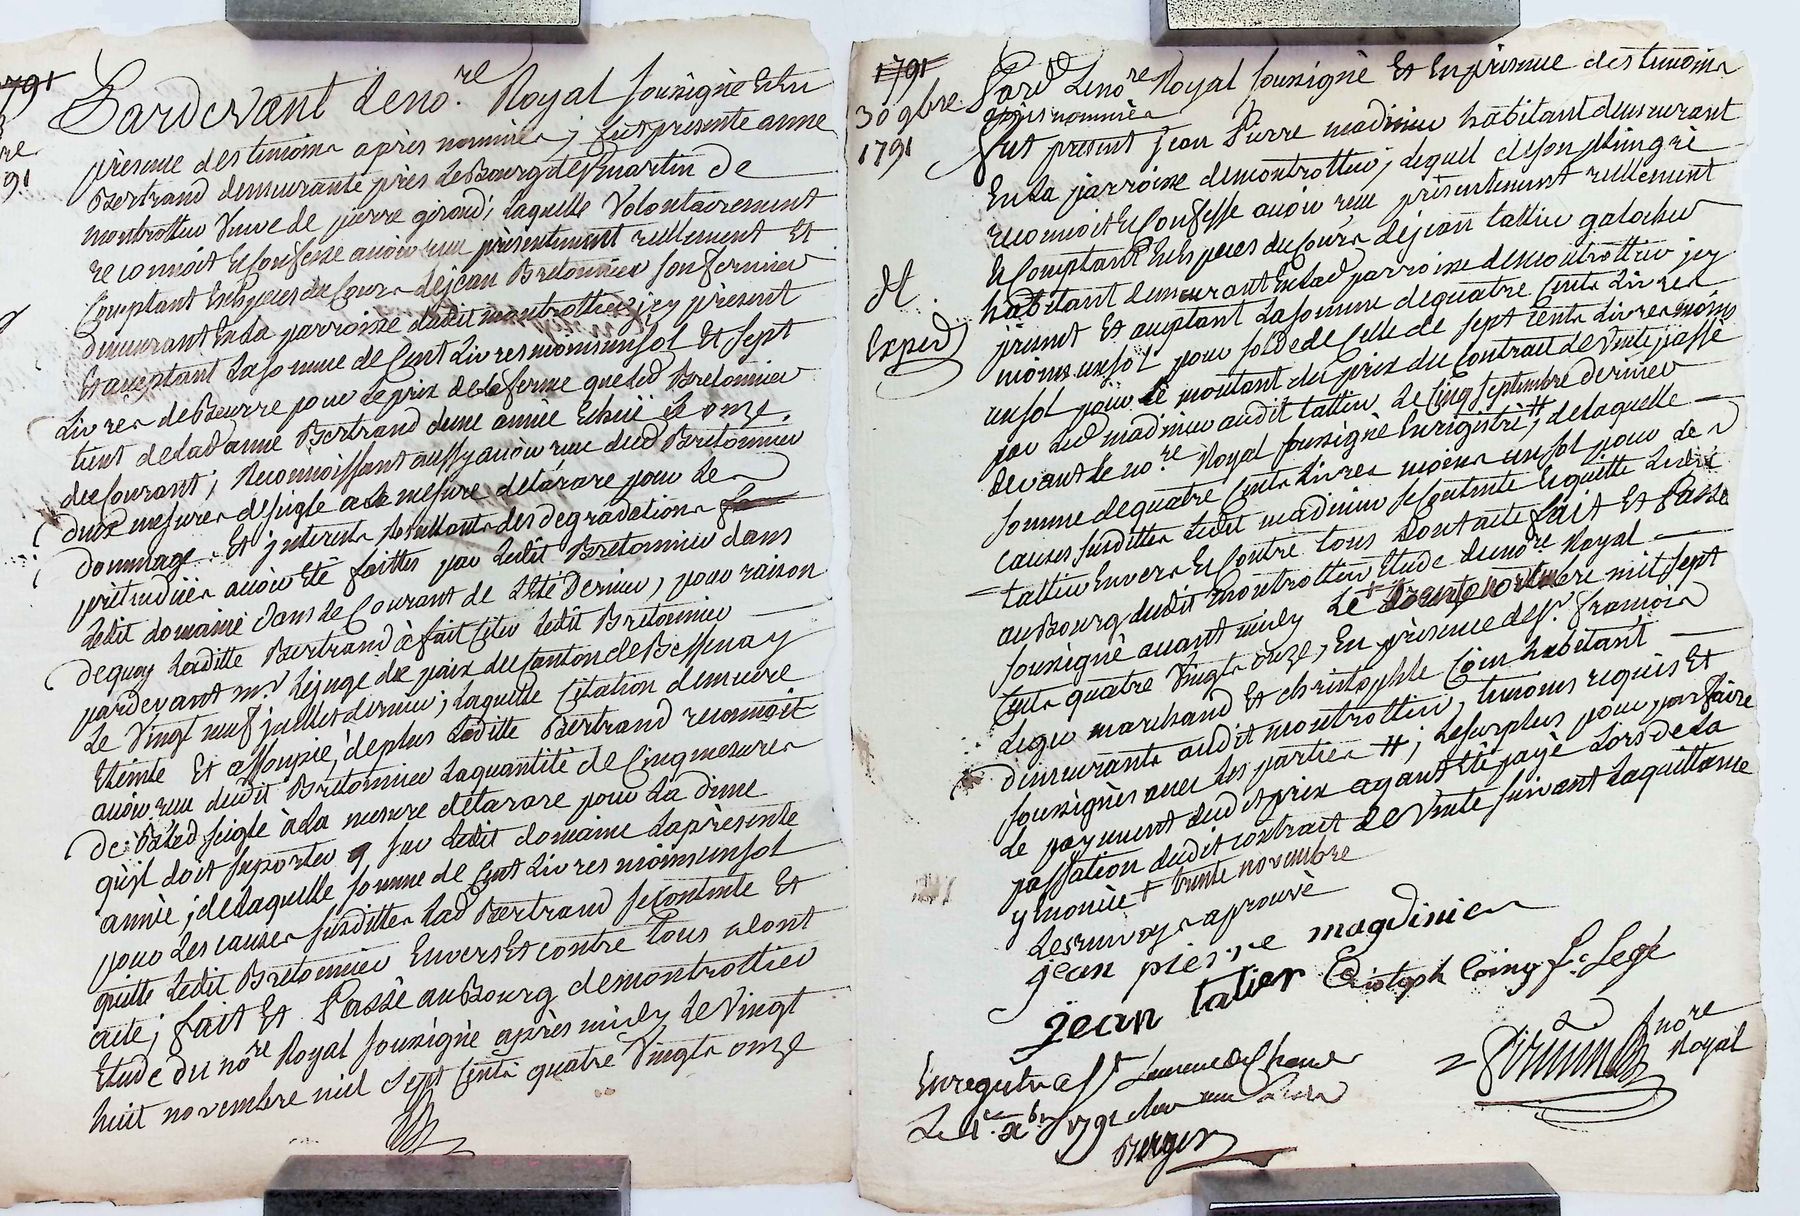 1791
Pardevant le no.re Royal soussigné Et En
présence des temoins après nommés, fut presente anne
Bertrand demeurante près le Bourg de St martin de
montrottier veuve de pierre giroud, laquelle volontairement
reconnoit Et Confesse avoir reçu présentement reellement Et
Comptant En Especes du Cours de jean Bretonnier son fermier
demeurant En la parroisse dudit montrottier, jcy present
Et aceptant la somme de Cent livres moins un sol Et sept
livres de Beurre pour le prix de la ferme que led Bretonnier
tient de lad anne Bertrand d'une année Echuë le onze
du Courant; Reconnoissant aussy avoir reçu dud Bretonnier
deux mesures de seigle a la mesure de tarare pour les
dommages Et jnterests resultants des degradations
pretendües avoir Eté faittes par ledit Bretonnier dans
ledit domaine dans le Courant de l'Eté Dernier, pour raison
de quoy laditte Bertrand à fait Citer ledit Bretonnier
pardevant mr. le juge de paix du Canton de Bessenay
le vingt neuf juillet dernier; laquelle Citation demeure
Eteinte Et assoupie, de plus laditte Bertrand reconnoit
avoir reçu dudit Bretonnier la quantité de Cinq mesures
de Bled seigle à la mesure de tarare pour la dime
qu'il doit suporter sur ledit domaine la présente
année; de laquelle somme de Cent livres moins un sol
pour les causes susdittes lad Bertrand se contente Et
quitte ledit Bretonnier Envers Et contre tous dont
acte; fait Et Passé au Bourg de montrottier
Etude du no.re Royal soussigné après midy le vingt
huit novembre mil sept Cents quatre vingts onze
1791
30 9bre
1791
Pard. le no.re Royal soussigné Et En présence des temoins
après nommés
fut present jean Pierre madinier habitant demeurant
En la parroisse de montrottier, lequel de son plein gré
reconnoit Et Confesse avoir reçu présentement reellement
Et Comptant En Especes du Cours de jean tattier galocher
habitant demeurant En lad parroisse de montrottier jcy
Exped
présent Et aceptant la somme de quatre Cents livres
moins un sol pour solde de Celle de sept Cents livres moins
un sol pour le montant du prix du Contrat de vente passé
par led madinier audit tattier le Cinq septembre dernier
devant le no.re Royal soussigné Enregistré #, de laquelle
somme de quatre Cents livres moins un sol pour les
causes susdittes ledit madinier se Contente Et quitte ledit
tattier Envers Et Contre tous Dont acte fait Et Passé
au Bourg dudit montrottier Etude du no.re Royal
soussigné avant midy le + mil sept
Cents quatre vingts onze, En présence de sr. francois
Legé marchand Et christophle Coin habitant
demeurants audit montrottier, temoins requis Et
soussignés avec les parties #; le surplus pour parfaire
le payement dudit prix ayant Eté payé lors de la
passation dudit contrat de vente suivant la quittance
y Enoncée + trente novembre
Les renvoys aprouvé
jean pierre magdinier
jean tatier Cristoph Coing fs. Legé
nore
Royal
Enregistré a St Laurent de Chamousset
Le 1er xbre 1791
Berger